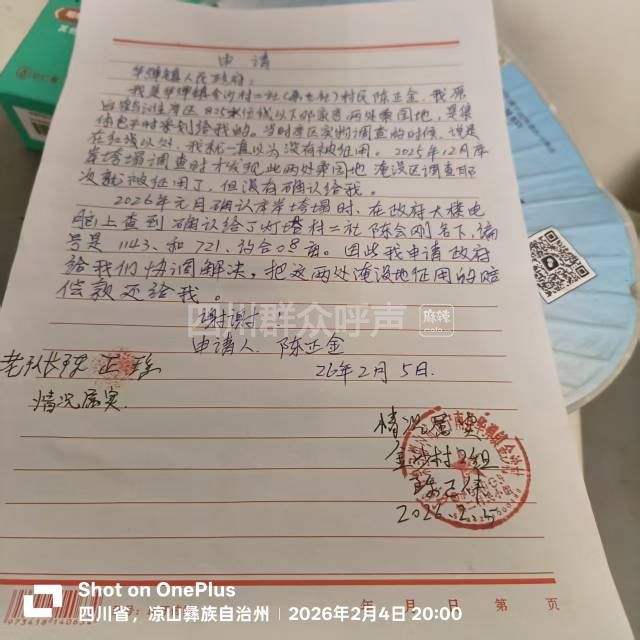 申请
华弹镇人民政府：
我是华弹镇金沙村二社(原七社)村民陈正金，我原
白鹤滩库区825水位线以下外家弯两处果园地，是集
体包干时发到给我的。当时库区实物调查的时候，说是
在红线以外，我就一直以为没有被征用。2025年12月库
岸塌塌调查时才发现此两处果园地 淹没区调查那
次就被征用了，但没有确认给我。
2026年元月确认库岸垮塌时，在政府大楼电
脑上查到确认给了灯塔村二社陈会刚名下，编
号是1143、和721、约合0.8亩。因此我申请政府
给我们协调解决，把这两处淹没地征用的赔
偿款还给我。
谢谢
申请人 陈正金
26年2月5日.
老队长 陈正
情况属实.
情况属实
金沙村2组
2026.2.5
四川群众呼声
麻辣
年 月 日 第 页
Shot on OnePlus
四川省，凉山彝族自治州 | 2026年2月4日 20:00